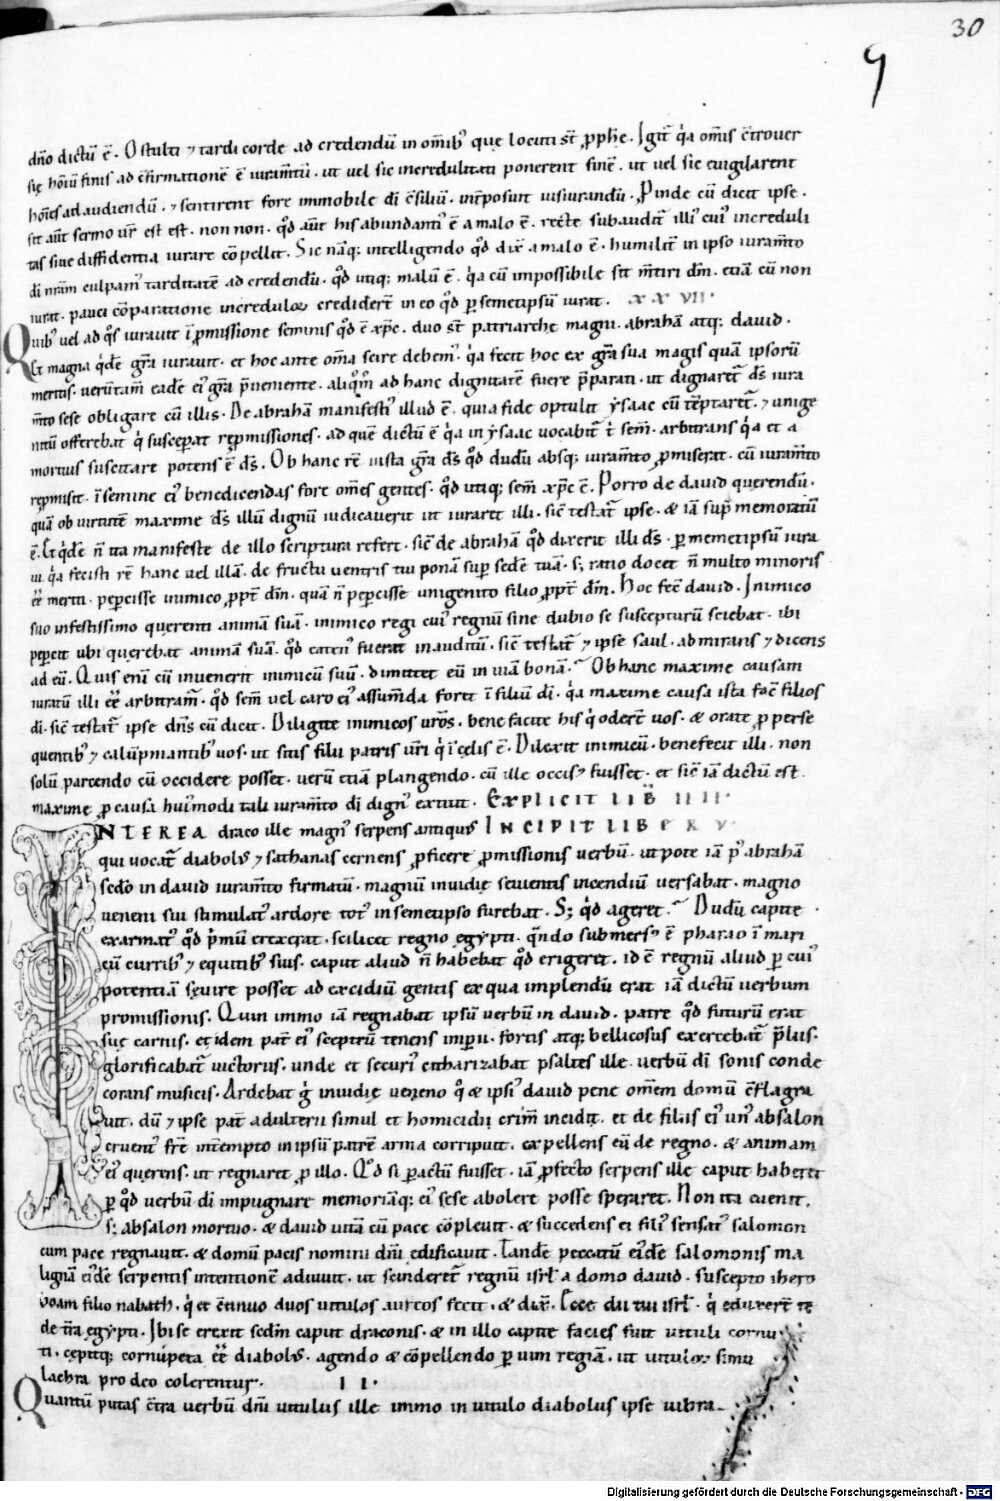 30
9
dn̄o dictū ē. O stulti ⁊ tardi corde ad credendū in om̄ib' que locuti st̄ ꝓph̄e. Igit̄ q̇a om̄is c̄trouer
sie hōiū finis ad c̄firmationē ē iuram̄tū. ut uel sic incredulitati ponerent finē. ut uel sic euigilarent
hōies ad audiendū. ⁊ sentirent fore immobile dī c̄siliū. int̄posuit iusiurandū. Pinde cū dicit ipse.
sit aūt sermo ur̄ est est. non non. qd̄ aūt his abundanti' ē a malo ē. recte subaudit̄ illi' cui' increduli
tas siue diffidentia iurare cōpellit. Sic nāq; intelligendo qd̄ dix̄ a malo ē. humilit̄ in ipso iuram̄to
dī nr̄am culpam' tarditatē ad credendū. qd̄ utiq; malū ē. q̇a cū impossibile sit m̄tiri dm̄. etiā cū non
iurat. pauci cōparatione increduloꝝ credidert̄ in eo qd̄ ꝑ semetipsū iurat. xx vii.
Quib' uel ad qs̄ iurauit ī ꝓmissione seminis qd̄ ē xp̄c. duo st̄ patriarche magni. abrahā atq; dauid.
Et magna qd̄e gr̄a iurauit. et hoc ante om̄a scire debem'. q̇a fecit hoc ex gr̄a sua magis quā ipsorū
meritis. uerūtam̄ eadē ei' gr̄a p̄ueniente. aliqm̄ ad hanc dignitatē fuere p̄parati. ut dignaret̄ ds̄ iura
m̄to sese obligare cū illis. De abrahā manifesti' illud ē. quia fide optulit ysaac cū tēptaret̄. ⁊ unige
nitū offerebat q̇ susceperat repmissiones. ad quē dictū ē q̇a in ysaac uocabit̄ t̄ sem̄. arbitrans q̇a et a
mortuis suscitare potens ē ds̄. Ob hanc rē iusta gr̄a ds̄ qd̄ dudū absq; iuram̄to ꝓmiserat. cū iuram̄to
repmisit. ī semine ei' benedicendas fore om̄es gentes. qd̄ utiq; sem̄ xp̄c ē. Porro de dauid querendū.
quā ob uirtutē maxime ds̄ illū dignū iudicauerit ut iuraret illi. sic̄ testat̄ ipse. & iā sup̄ memoratū
ē. Et qd̄e n̄ ita manifeste de illo scriptura refert. sic̄ de abrahā qd̄ dixerit illi ds̄. ꝑ memetipsū iura
ui. q̇a fecisti rē hanc uel illā. de fructu uentris tui ponā sup̄ sedē tuā. s; ratio docet n̄ multo minoris
ēē meriti. peꝑcisse inimico ꝓpt̄ dm̄. quā n̄ peꝑcisse unigenito filio ꝓpt̄ dm̄. Hoc fec̄ dauid. Inimico
suo infestissimo querenti animā suā. inimico regi cui' regnū sine dubio se suscepturū sciebat. ibi
peꝑcit ubi querebat animā suā. qd̄ eaten' fuerat inauditū. sic̄ testat̄ ⁊ ipse saul. admirans ⁊ dicens
ad eū. Quis enī cū inuenerit inimicū suū. dimittet eū in uiā bonā. Ob hanc maxime causam
iuratū illi ēē arbitram̄. qd̄ sem̄ uel caro ei' assum̄da foret ī filiū dī. q̇a maxime causa ista fac̄ filios
dī. sic̄ testat̄ ipse dn̄s cū dicit. Diligite inimicos uros̄. benefacite his q̇ oder̄t uos. & orate ꝓ perse
quentib' ⁊ calūpniantib' uos. ut sitis filii patris ur̄i q̇ ī celis ē. Dilexit inimicū. benefecit illi. non
solū parcendo cū occidere posset. uerū etiā plangendo. cū ille occis' fuisset. et sic̄ iā dictū est.
maxime ꝓ causa hui'modi tali iuram̄to dī dign' extitit. EXPLICIT LIB̄ IIII.
INTEREA draco ille magn' serpens antiquus INCIPIT LIBER V.
qui uocat̄ diabol' ⁊ sathanas cernens ꝓficere ꝓmissionis uerbū. utpote iā p' abrahā
scdo in dauid iuram̄to firmatū. magnū inuidie seuientis incendiū uersabat. magno
ueneni sui stimulat' ardore tot' in semetipso furebat. S; qd̄ ageret. Dudū capite
exarmat' qd̄ p̄mū erexerat. scilicet regno egypti. qn̄do submers' ē pharao ī mari
cū currib' ⁊ equitib' suis. caput aliud n̄ habebat qd̄ erigeret. id ē regnū aliud ꝑ cui'
potentiā seuire posset ad excidiū gentis ex qua implendū erat iā dictū uerbum
promissionis. Quin immo iā regnabat ipsū uerbū in dauid. patre qd̄ futurū erat
sue carnis. et idem pat̄ ei' sceptrū tenens imperii. fortis atq; bellicosus exercebat̄ p̄liis.
glorificabat̄ uictoriis. unde et secur' citharizabat psaltes ille. uerbū dī sonis conde
corans musicis. Ardebat ḡ inuidie ueneno qo & ipsi' dauid pene om̄em domū c̄flagra
uit. dū ⁊ ipse pat̄ adulterii simul et homicidii crim̄ incidit. et de filiis ei' un' absalon
cruent' fr̄e int̄empto in ipsū patrē arma corripuit. expellens eū de regno. & animam
ei' querens. ut regnaret ꝓ illo. Qd̄ si ꝑactū fuisset. iā ꝓfecto serpens ille caput haberet
ꝑ qd̄ uerbū dī impugnare memoriāq; ei' sese abolere posse speraret. Non ita euenit.
s; absalon mortuo. & dauid uitā cū pace cōpleuit. & succedens ei fili' sensat' salomon
cum pace regnauit. & domū pacis nomini dn̄i edificauit. Tandē peccatū ei'dē salomonis ma
lignā ei'dē serpentis intentionē adiuuit. ut scinderet̄ regnū isrl̄ a domo dauid. suscepto ihero
boam filio nabath. q̇ et c̄tinuo duos uitulos aureos fecit. & dix̄. Ecce dii tui isrl̄. q̇ eduxer̄t te
de tr̄a egypti. Ibi se erexit scdm̄ caput draconis. & in illo capite facies fuit uituli cornu
ti. cepitq; cornupeta ēē diabol'. agendo & cōpellendo ꝑ uim regiā. ut uituloꝝ simu
lachra pro deo colerentur. II.
Quantū putas c̄tra uerbū dn̄i uitulus ille immo in uitulo diabolus ipse uibra
Digitalisierung gefördert durch die Deutsche Forschungsgemeinschaft - DFG